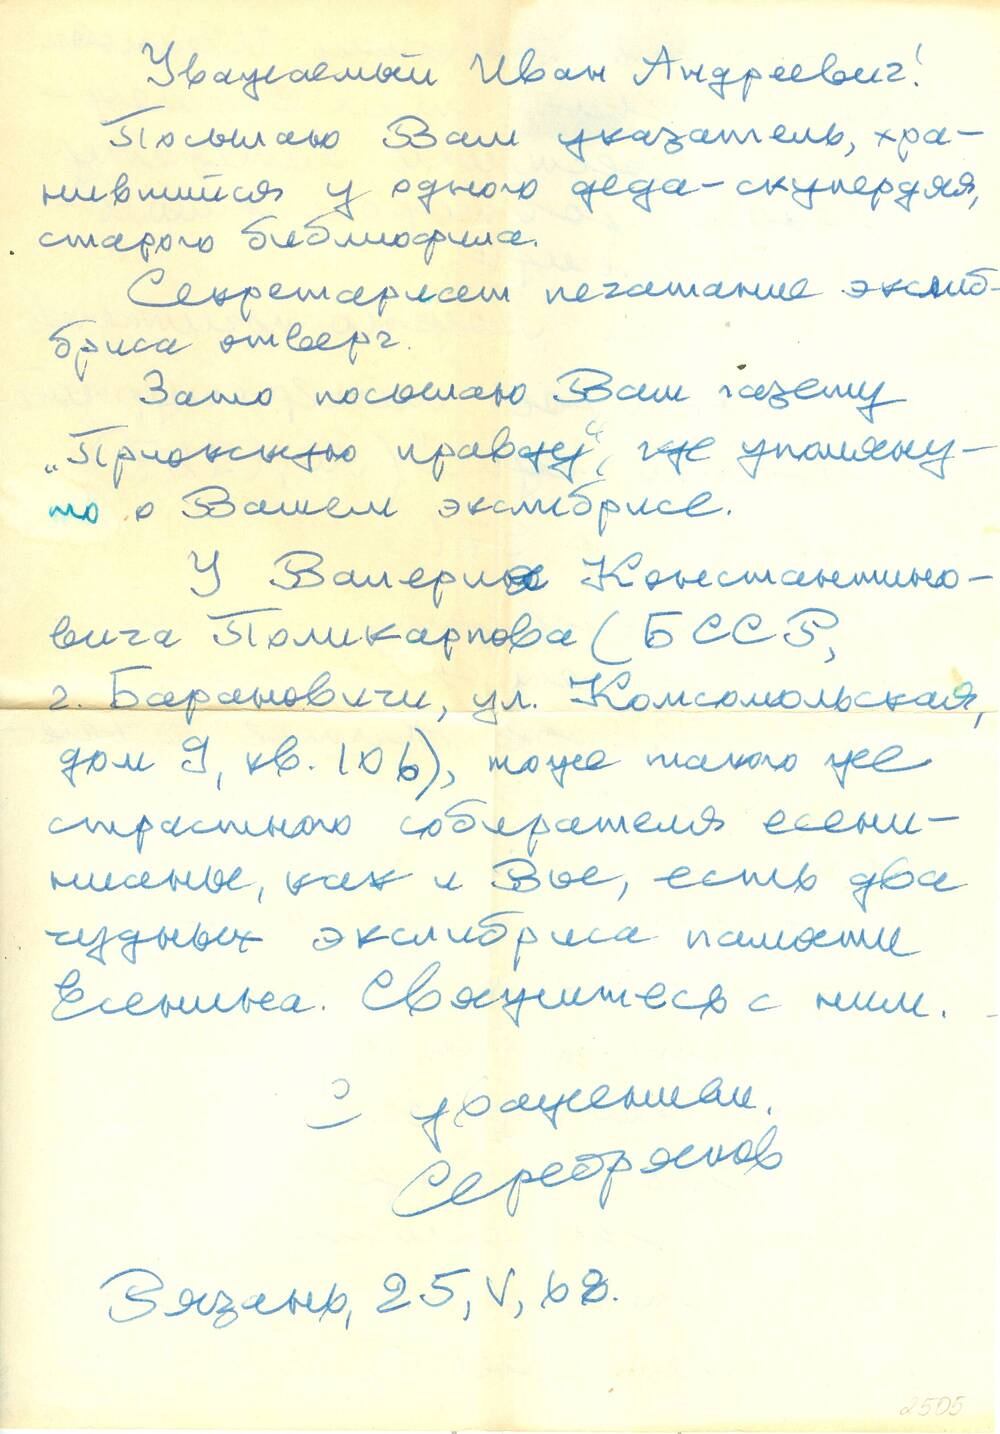 Уважаемый Иван Андреевич!
Посылаю Вам указатель, хра-
нившийся у одного деда-скупердяя,
старого библиофила.
Секретариат печатание экслиб-
бриса отверг.
Зато посылаю Вам газету
„Приокскую правду“, где упомяну-
то о Вашем экслибрисе.
У Валерия Константино-
вича Поликарпова (БССР,
г. Барановичи, ул. Комсомольская,
дом 9, кв. 106), тоже такого же
страстного собирателя есени-
нианы, как и Вы, есть два
чудных экслибриса памяти
Есенина. Свяжитесь с ним.
С уважением.
Серебряков
Рязань, 25, V, 68.
2505